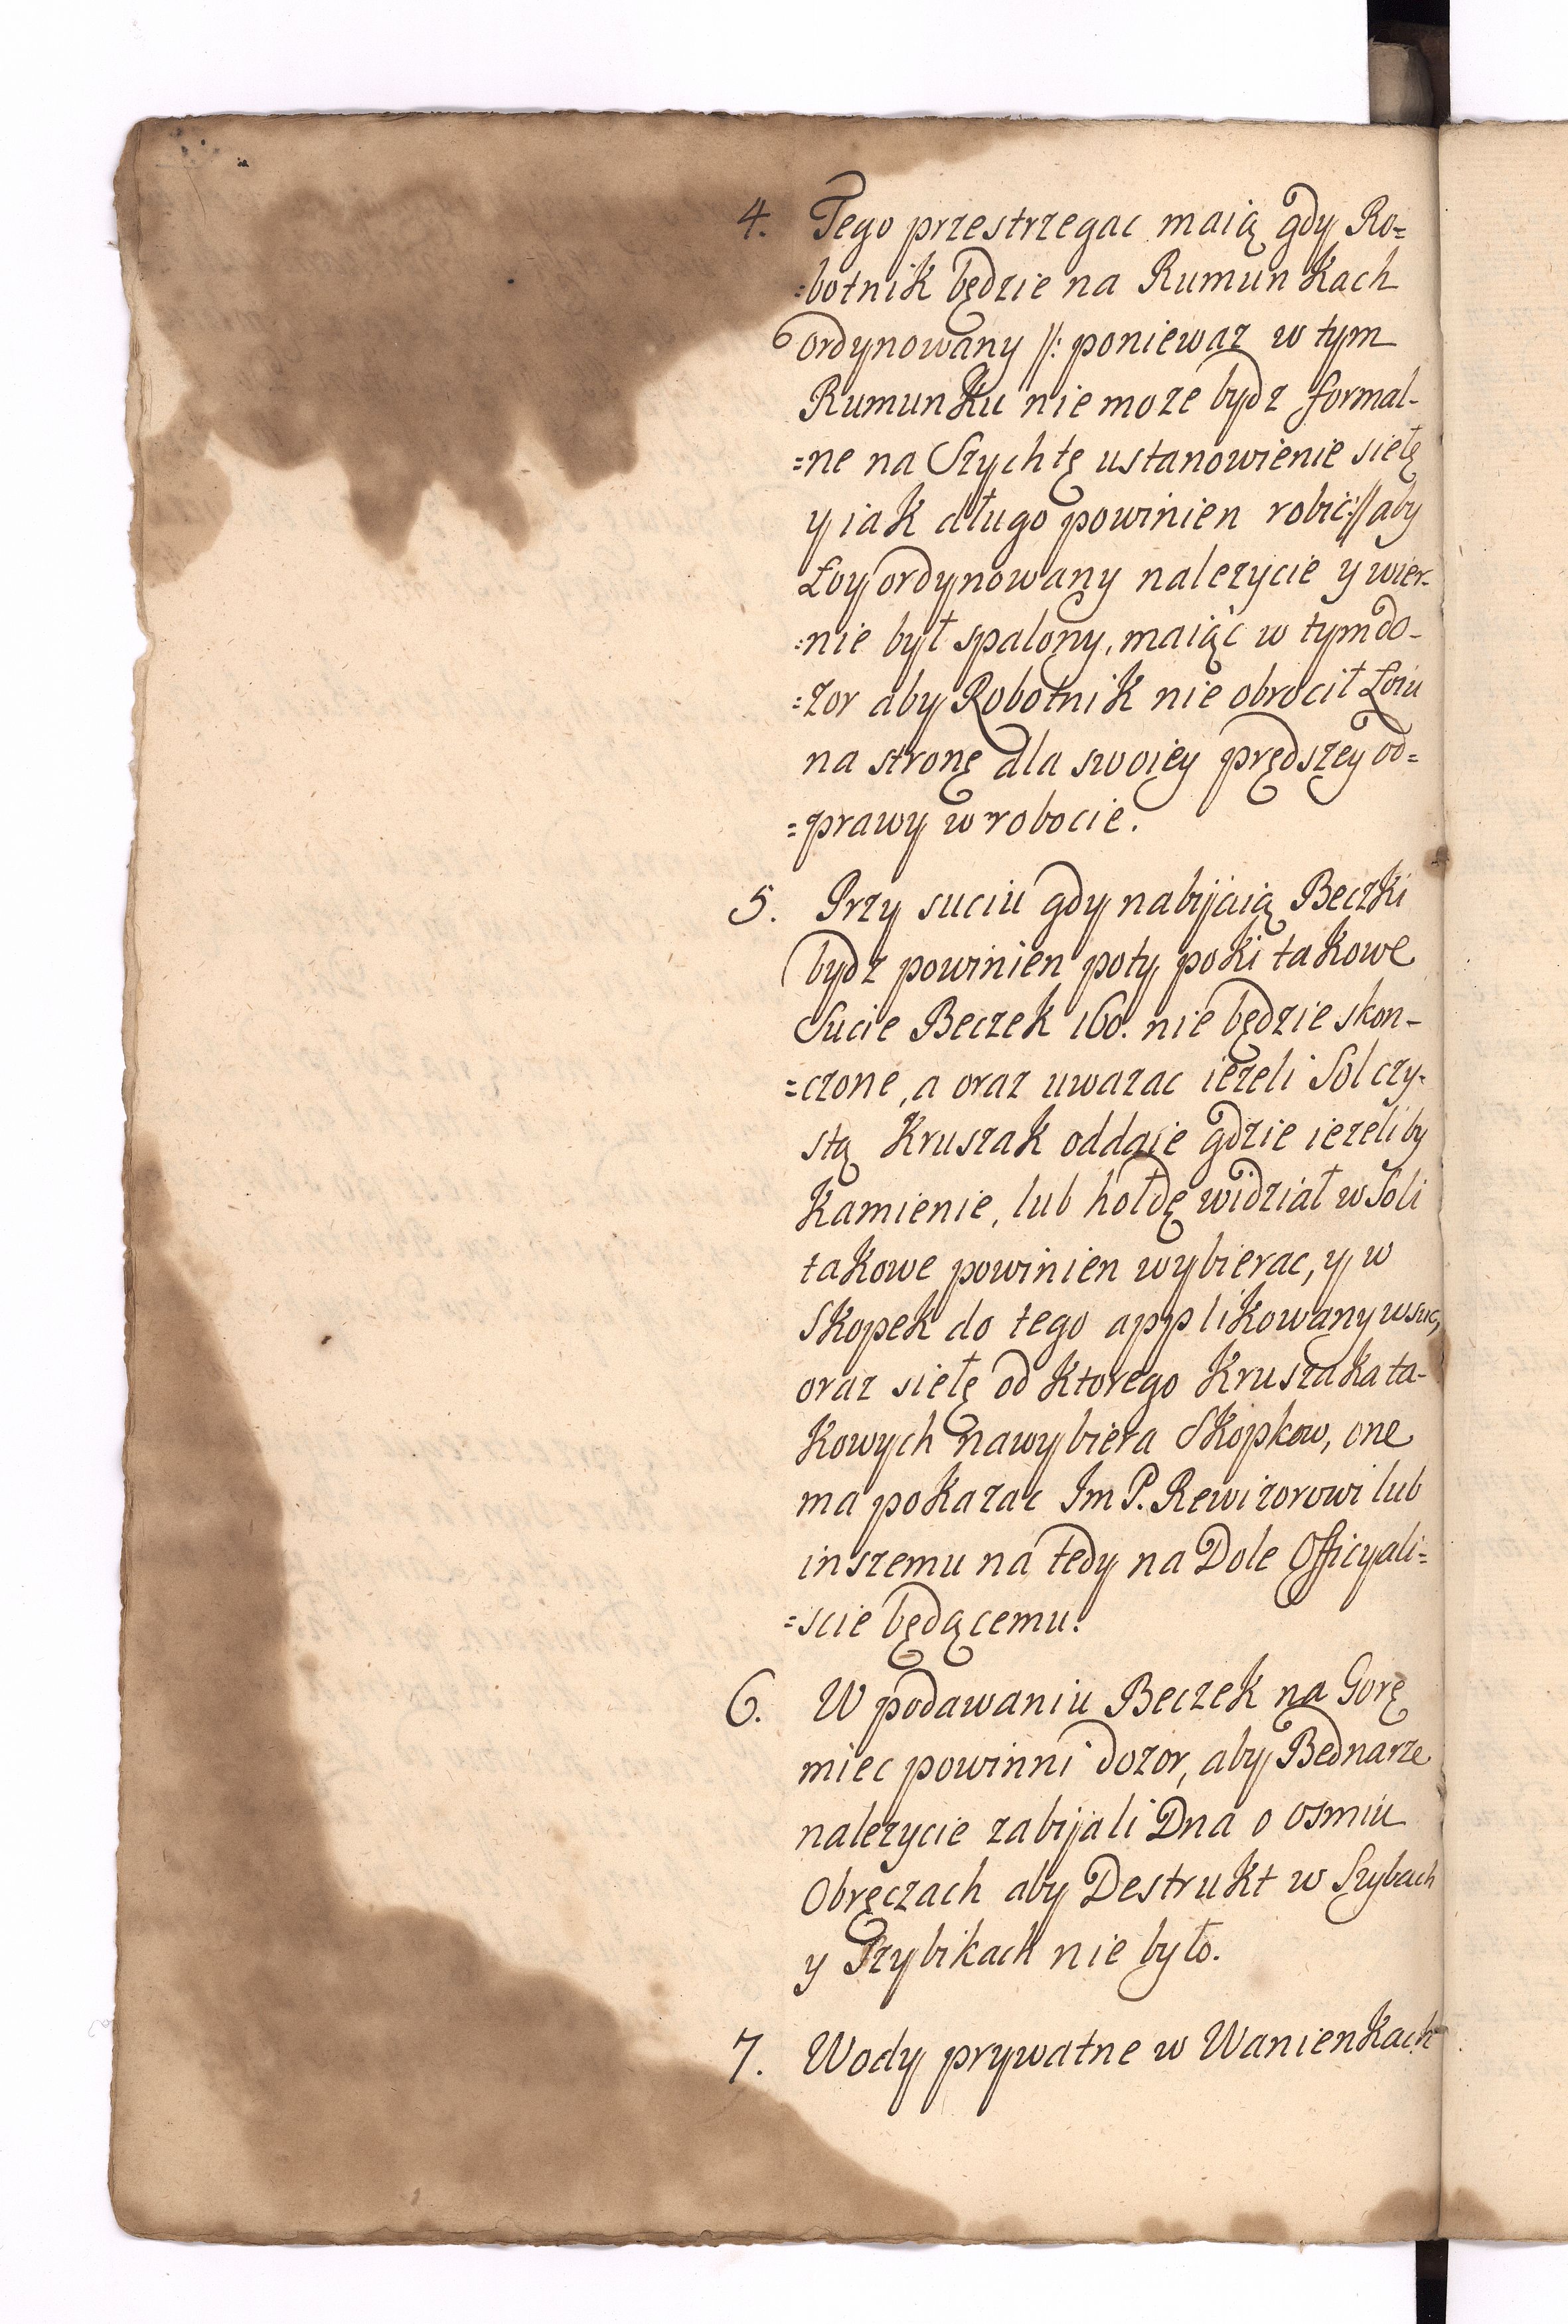 4. Tego przestrzegac maią gdy Ro=
=botnik będzie na Rumunkach
ordynowany //: poniewaz w tym
Rumunku nie moze bydz formal-
=ne na Szychtę ustanowienie siełę
y iak długo powinien robić:// aby
Łoy ordynowany nalezycie y wier-
=nie był spalony, maiąc w tym do-
=zor aby Robotnik nie obrocił Łoiu
na stronę dla swoiey prędszey od=
=prawy w robocie.
5. Przy suciu gdy nabijaią Beczki
bydz powinien poty poki takowe
Sucie Beczek 160. nie będzie skon-
=czone, a oraz uwazac iezeli Sol czy-
stą Kruszak oddaie gdzie iezeliby
Kamienie, lub hołdę widział w Soli
takowe powinien wybierac, y w
Skopek do tego applikowany wsuc,
oraz siełę od ktorego Kruszaka ta-
kowych nawybiera Skopkow, one
ma pokazac Im P. Rewizorowi lub
inszemu na tedy na Dole Officyali=
=scie będącemu.
6. W podawaniu Beczek na Gorę
miec powinni dozor, aby Bednarze
nalezycie zabijali Dna o osmiu
Obręczach aby Destrukt w Szybach
y Szybikach nie było.
7. Wody prywatne w Wanienkach